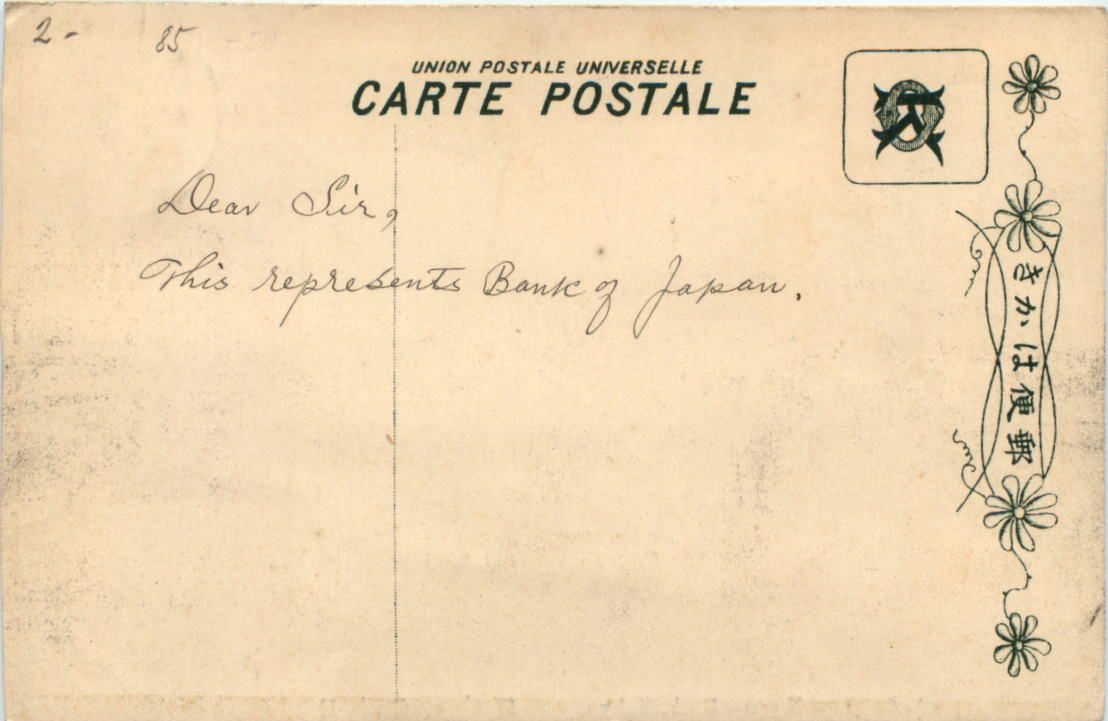 2- 85
UNION POSTALE UNIVERSELLE
CARTE POSTALE
Dear Sir,
This represents Bank of Japan.
きかは便郵